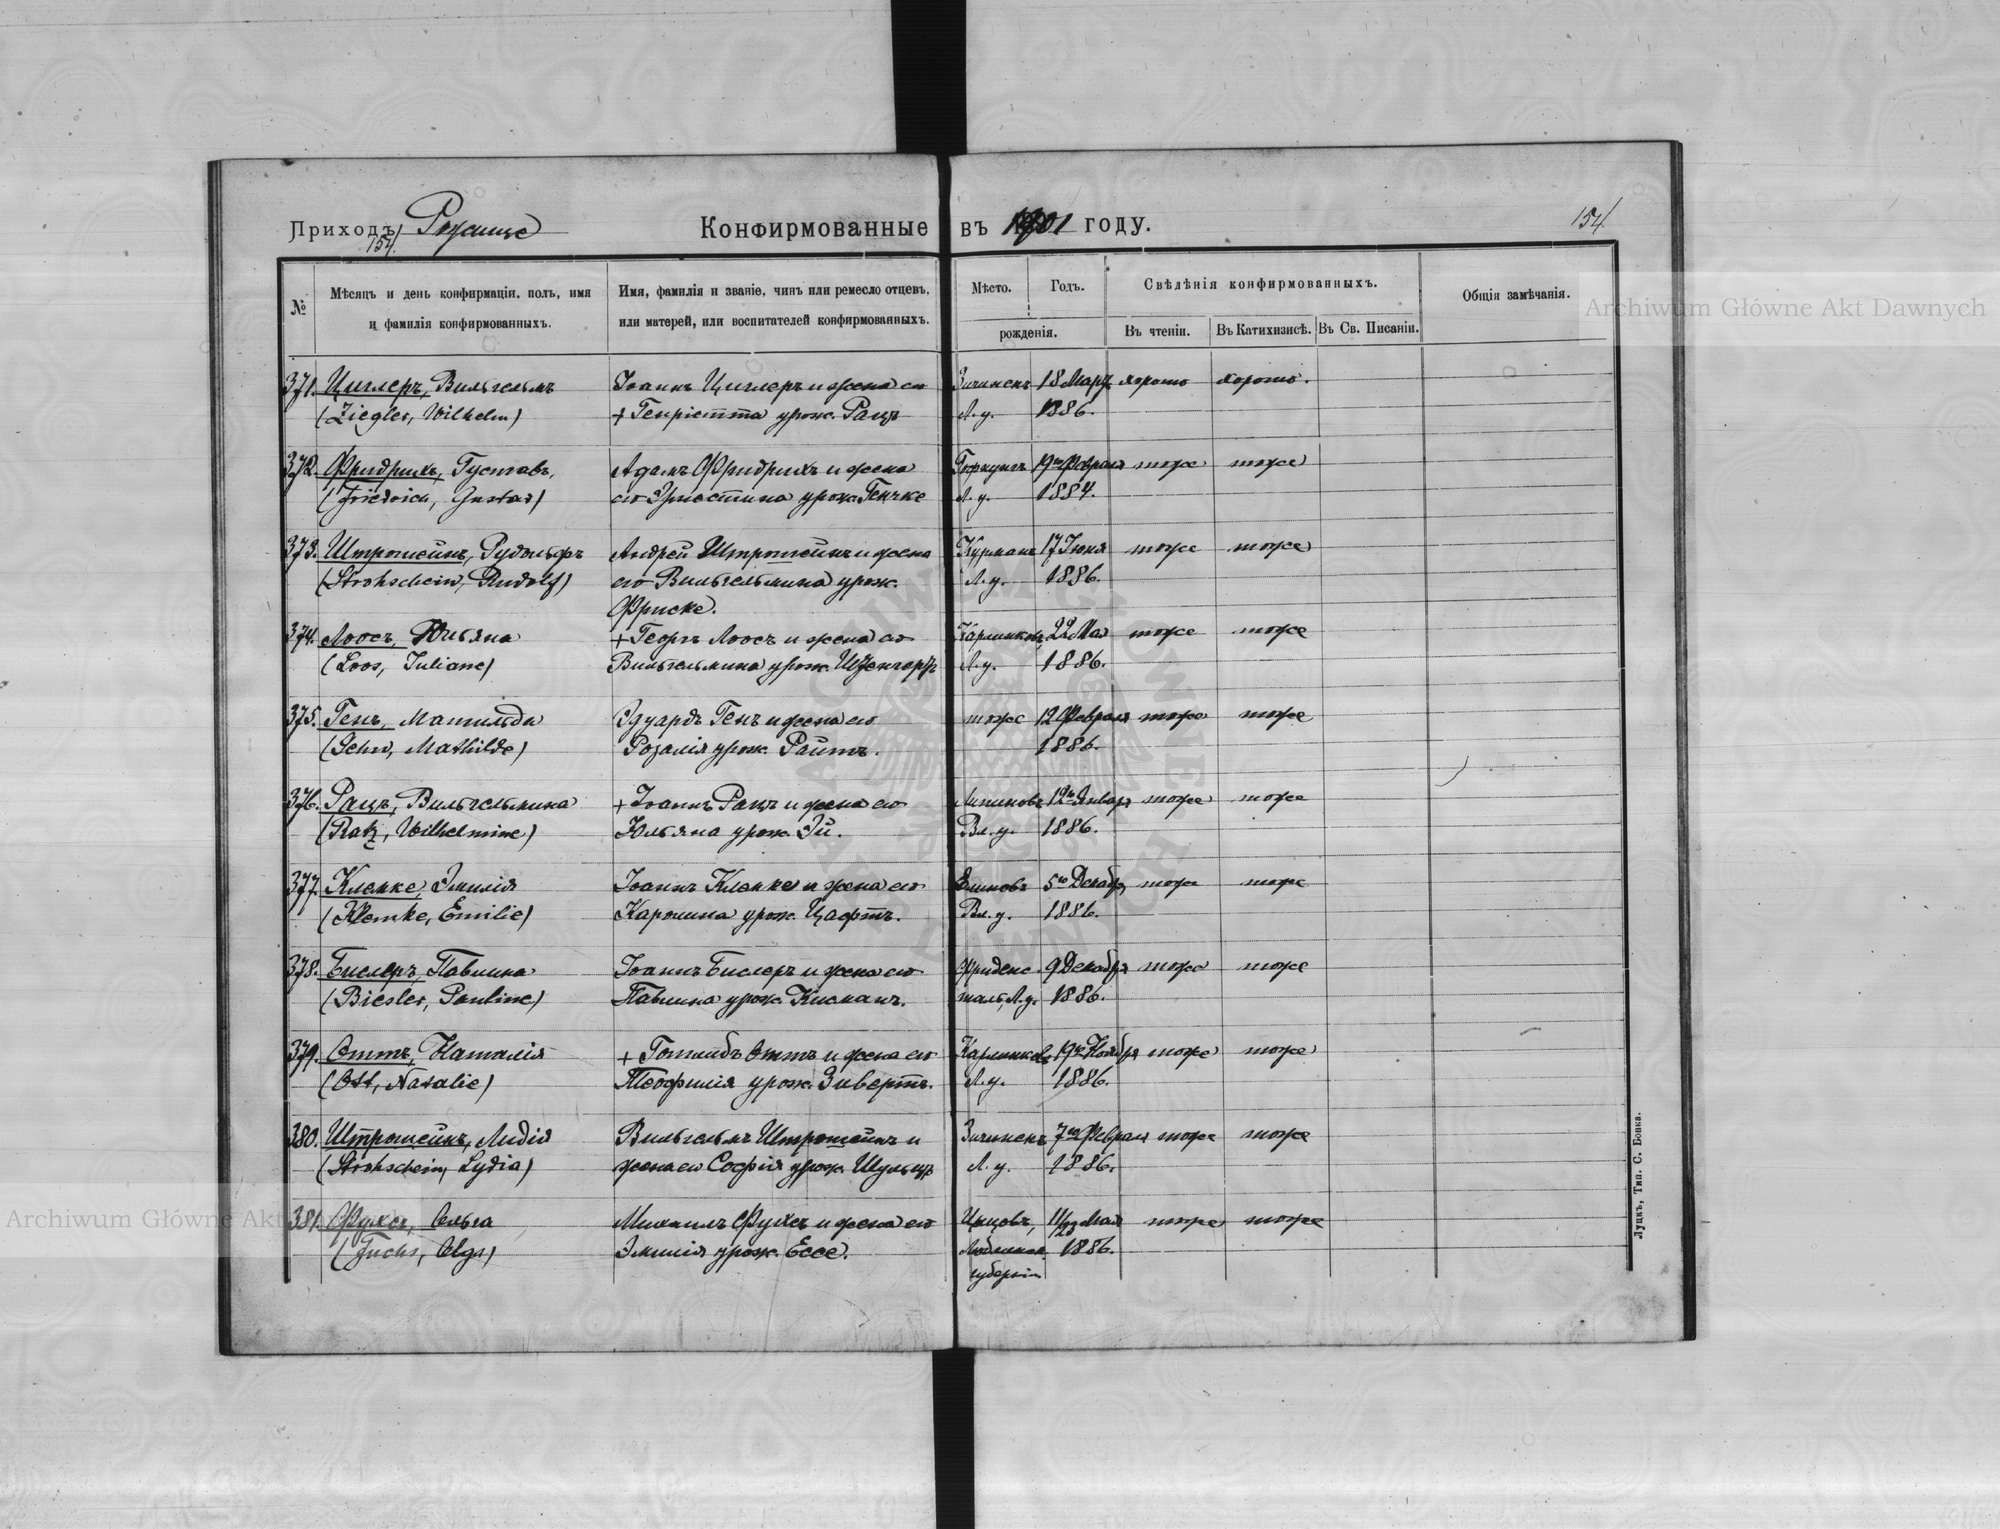 Приходъ Рожище
Конфирмованные въ 1901 году.
154.
154
№
Мѣсяцъ и день конфирмаціи, полъ, имя
и фамилія конфирмованныхъ.
Имя, фамилія и званіе, чинъ или ремесло отцевъ,
или матерей, или воспитателей конфирмованныхъ.
Мѣсто.
Годъ.
рожденія.
Свѣдѣнія конфирмованныхъ.
Въ чтеніи.
Въ Катихизисѣ.
Въ Св. Писаніи.
Общія замѣчанія.
Archiwum Główne Akt Dawnych
371. Циглеръ, Вильгельмъ Іоаннъ Циглеръ и жена его 18 Март. хорошо хорошо.
(Ziegler, Wilhelm) + Генріетта урож. Рацъ Л. у. 1886.
372. Фридрихъ, Густавъ, Адамъ Фридрихъ и жена 19го Февраля тоже тоже
(Friedrich, Gustav) его Эрнестина урож. Генчке Л. у. 1884.
373. Штрошейнъ, Рудольфъ Андрей Штрошейнъ и жена 17 Іюня тоже тоже
(Strohschein, Rudolf) его Вильгельмина урож. Л. у. 1886.
Фриске.
374. Лоосъ, Юльяна + Георгъ Лоосъ и жена его 22 Мая тоже тоже
(Loos, Juliane) Вильгельмина урож. Л. у. 1886.
375. Генъ, Матильда Эдуардъ Генъ и жена его тоже 12 Февраля тоже тоже
(Gehn, Mathilde) Розалія урож. Райтъ. 1886.
376. Рацъ, Вильгельмина + Іоаннъ Рацъ и жена его 12го Января тоже тоже
(Ratz, Wilhelmine) Юльяна урож. Эй. Вл. у. 1886.
377. Клемке, Эмилія Іоаннъ Клемке и жена его 5го Декабр. тоже тоже
(Klemke, Emilie) Каролина урож. Цафтъ. Вл. у. 1886.
378. Бислеръ, Павлина Іоаннъ Бислеръ и жена его Фриденс- 9 Декабря тоже тоже
(Biesler, Pauline) Павлина урож. Кисманъ. таль, Л. у. 1886.
379. Оттъ, Наталія + Готлибъ Оттъ и жена его Карлинковъ 19го Ноября тоже тоже
(Ott, Natalie) Теофилія урож. Зивертъ. Л. у. 1886.
380. Штрошейнъ, Лидія Вильгельмъ Штрошейнъ и 7го Февраля тоже тоже
(Strohschein, Lydia) жена его Софія урож. Шульцъ Л. у. 1886.
381. Фуксъ, Ольга Михаилъ Фуксъ и жена его 11/23 Мая тоже тоже
(Fuchs, Olga) Эмилія урож. Ессе. Люблинск. 1886.
губерніи
Луцкъ, Тип. С. Бовка.
Archiwum Główne Akt Dawnych